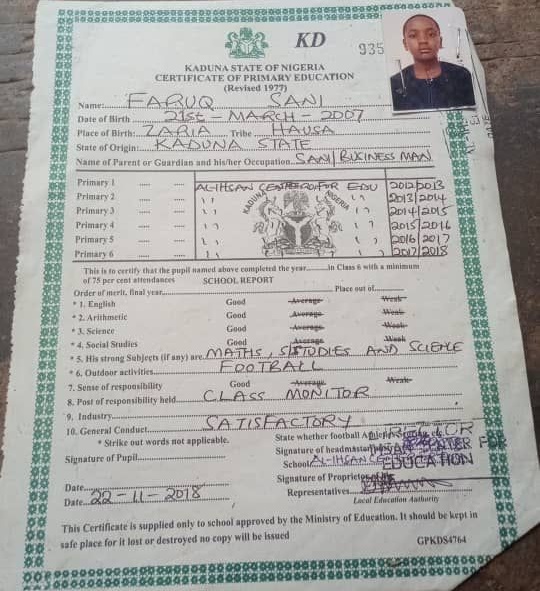 KD
935
KADUNA STATE OF NIGERIA
CERTIFICATE OF PRIMARY EDUCATION
(Revised 1977)
Name: FARUQ SANI
Date of Birth 21st - MARCH - 2007
Place of Birth: ZARIA Tribe HAUSA
State of Origin: KADUNA STATE
Name of Parent or Guardian and his/her Occupation. SANI/BUSINESS MAN
Primary 1 ..... ..... AL-IHSAN CENTRE FOR EDU 2012/2013
Primary 2 ..... ..... ,, ,, 2013/2014
Primary 3 ..... ..... ,, ,, 2014/2015
Primary 4 ..... ..... ,, ,, 2015/2016
Primary 5 ..... ..... ,, ,, 2016/2017
Primary 6 ..... ..... ,, ,, 2017/2018
KADUNA NIGERIA
This is to certify that the pupil named above completed the year..........in Class 6 with a minimum
of 75 per cent attendances SCHOOL REPORT
Order of merit, final year.......... Place out of..........
* 1. English Good Average Weak
* 2. Arithmetic Good Average Weak
* 3. Science Good Average Weak
* 4. Social Studies Good Average Weak
* 5. His strong Subjects (if any) are MATHS, S/STUDIES AND SCIENCE
* 6. Outdoor activities FOOTBALL
7. Sense of responsibility Good Average Weak
8. Post of responsibility held CLASS MONITOR
9. Industry
10. General Conduct SATISFACTORY
* Strike out words not applicable. State whether football
Signature of Pupil.......... Signature of headmaster
DIRECTOR
CENTER FOR
EDUCATION
School AL-IHSAN
Date.......... Signature of Proprietor
Date 22-11-2018 Representatives
Local Education Authority
This Certificate is supplied only to school approved by the Ministry of Education. It should be kept in
safe place for it lost or destroyed no copy will be issued
GPKDS4764